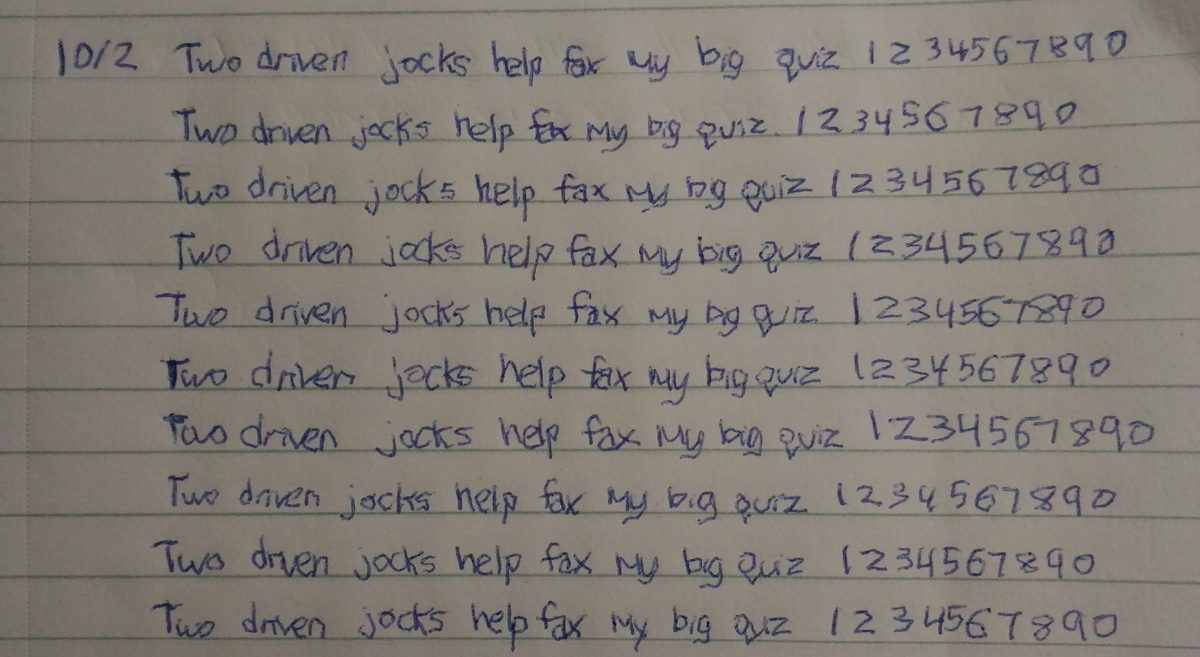 10/2 Two driven jocks help fax my big quiz 1234567890
Two driven jocks help fax my big quiz. 1234567890
Two driven jocks help fax my big quiz 1234567890
Two driven jocks help fax my big quiz 1234567890
Two driven jocks help fax my big quiz 1234567890
Two driven jocks help fax my big quiz 1234567890
Two driven jocks help fax my big quiz 1234567890
Two driven jocks help fax my big quiz 1234567890
Two driven jocks help fax my big quiz 1234567890
Two driven jocks help fax my big quiz 1234567890